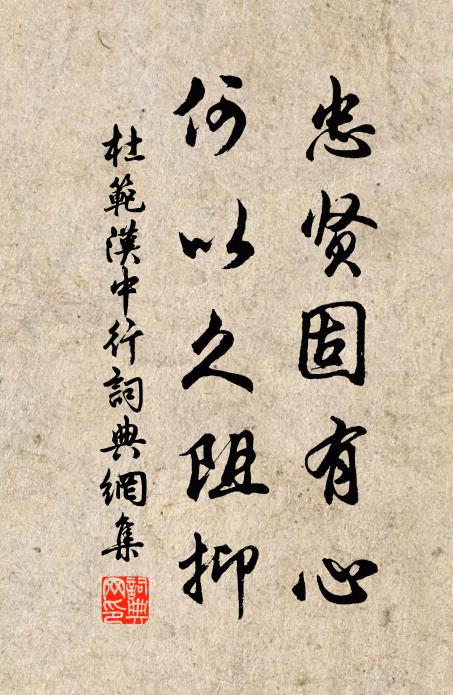 忠贤固有心
何以久阻抑
杜範漢中行詞典網集
詞典网印